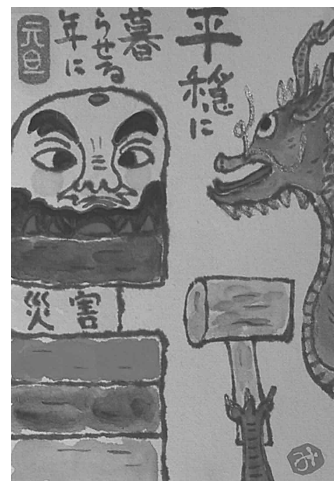 平穏に
暮
らせる
年に
元旦
災害
み